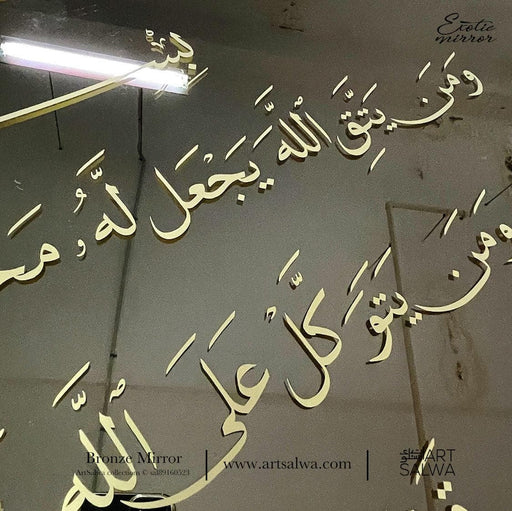 Exotic
mirror
وَمَن يَتَّقِ اللَّهَ يَجْعَل لَّهُ
وَمَن يَتَوَكَّلْ عَلَى اللَّهِ
Bronze Mirror
ArtSalwa collections © sal89160523
www.artsalwa.com
ART
SALWA